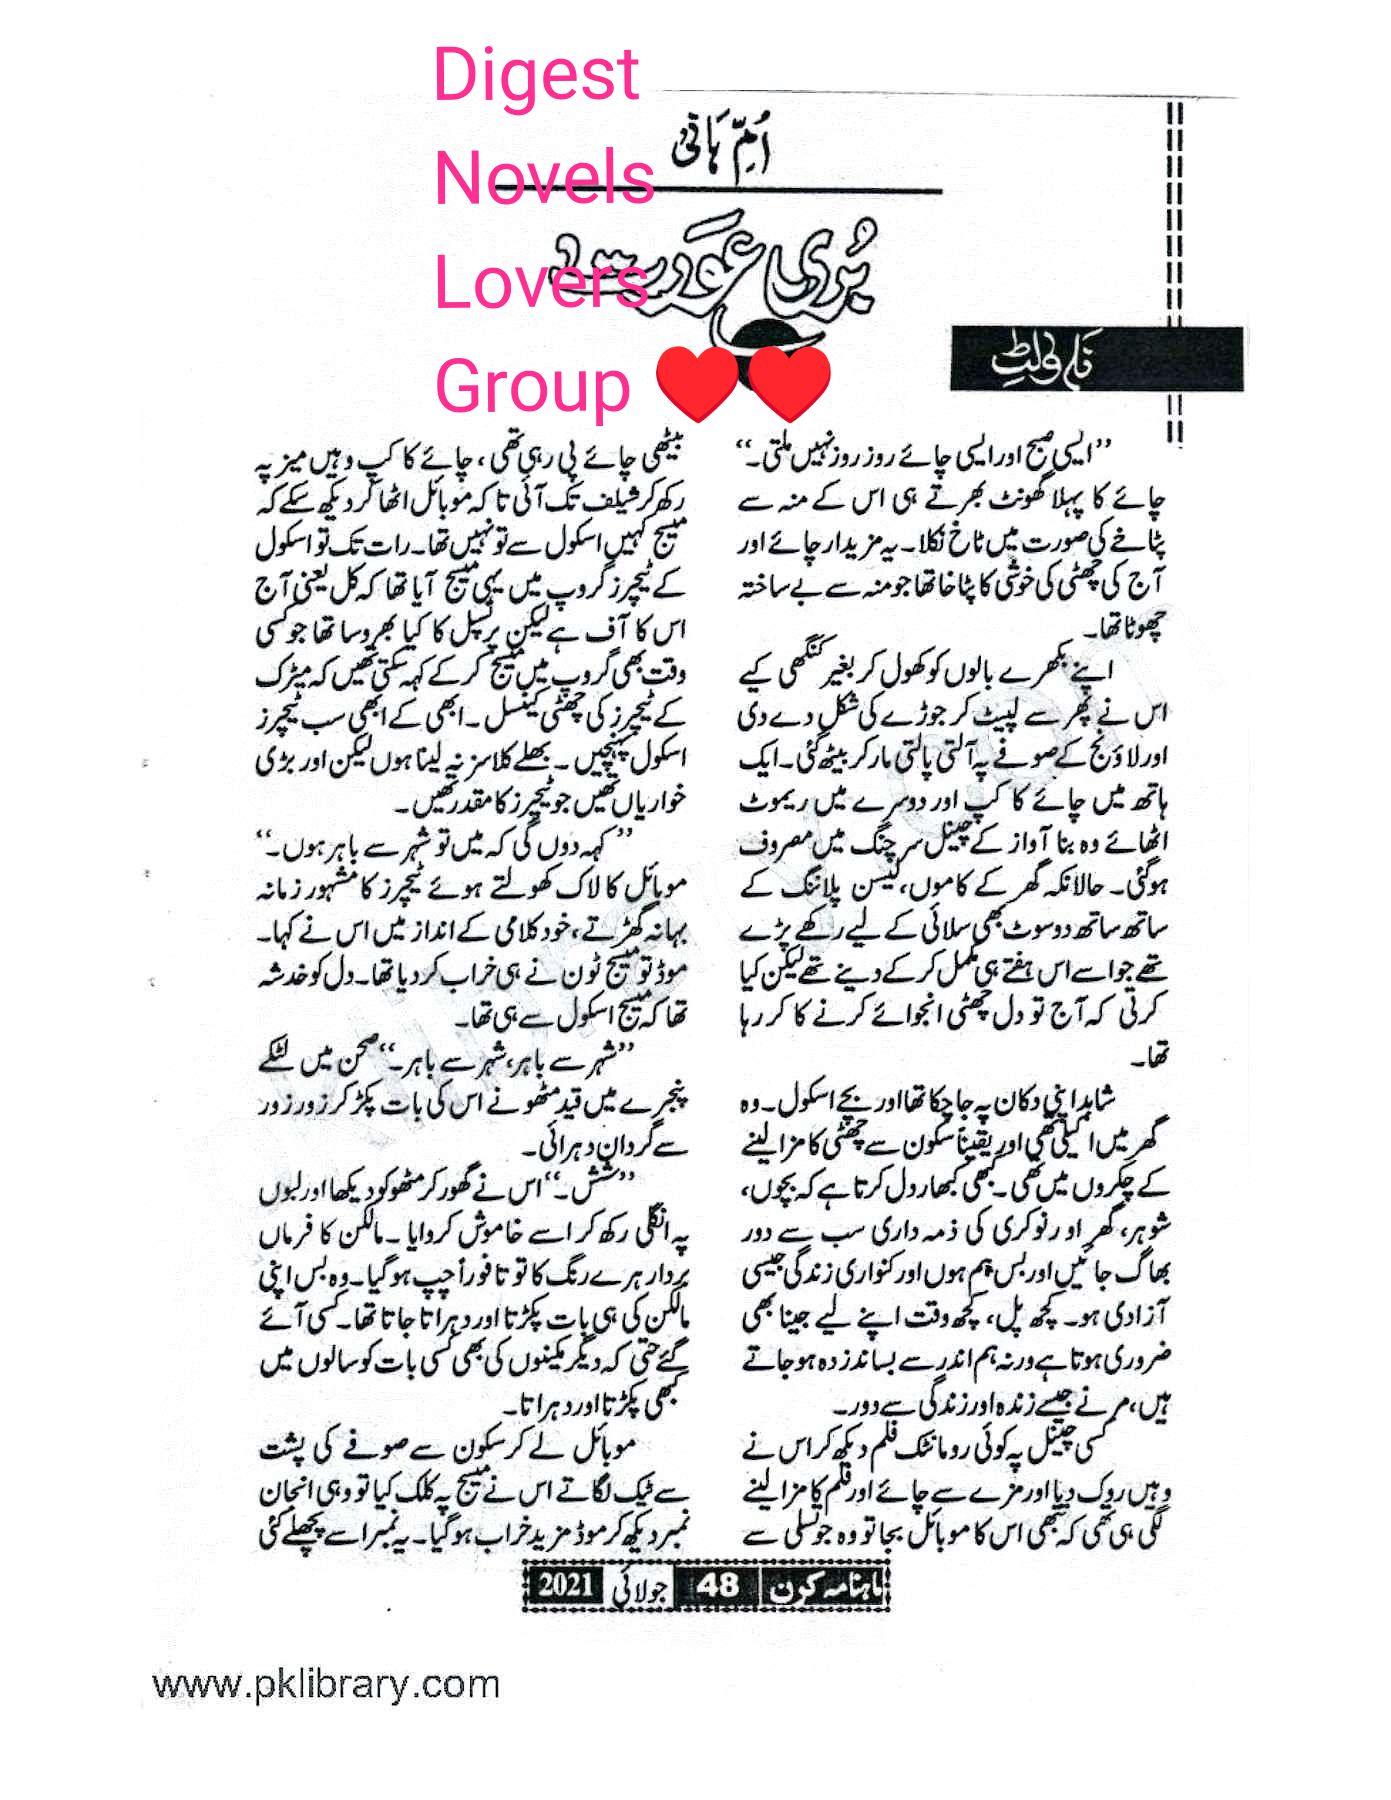 Digest
Novels
Lovers
Group ❤️❤️
اُمِّ ہَانی
بُری عَورت
ناولٹ
”ایسی صبح اور ایسی چائے روز روز نہیں ملتی۔“
چائے کا پہلا گھونٹ بھرتے ہی اس کے منہ سے
پٹاخے کی صورت میں ٹاخ نکلا۔ یہ مزیدار چائے اور
آج کی چھٹی کی خوشی کا پٹاخا تھا جو منہ سے بے ساختہ
چھوٹا تھا۔
اپنے بکھرے بالوں کو کھول کر بغیر کنگھی کیے
اس نے پھر سے لپیٹ کر جوڑے کی شکل دے دی
اور لاؤنج کے صوفے پہ آلتی پالتی مار کر بیٹھ گئی۔ ایک
ہاتھ میں چائے کا کپ اور دوسرے میں ریموٹ
اٹھائے وہ بنا آواز کے چینل سرچنگ میں مصروف
ہوگئی۔ حالانکہ گھر کے کاموں، لیسن پلاننگ کے
ساتھ ساتھ دو سوٹ بھی سلائی کے لیے رکھے پڑے
تھے جو اسے اس ہفتے ہی مکمل کرکے دینے تھے لیکن کیا
کرتی کہ آج تو دل چھٹی انجوائے کرنے کا کر رہا
تھا۔
شاہد اپنی دکان پہ جا چکا تھا اور بچے اسکول۔ وہ
گھر میں اکیلی تھی اور یقیناً سکون سے چھٹی کا مزا لینے
کے چکروں میں تھی۔ کبھی کبھار دل کرتا ہے کہ بچوں،
شوہر، گھر اور نوکری کی ذمہ داری سب سے دور
بھاگ جائیں اور بس ہم ہوں اور کنواری زندگی جیسی
آزادی ہو۔ کچھ پل، کچھ وقت اپنے لیے جینا بھی
ضروری ہوتا ہے ورنہ ہم اندر سے بساند زدہ ہو جاتے
ہیں، مرنے جیسے زندہ اور زندگی سے دور۔
کسی چینل پہ کوئی رومانٹک فلم دیکھ کر اس نے
وہیں روک دیا اور مزے سے چائے اور فلم کا مزا لینے
لگی ہی تھی کہ تبھی اس کا موبائل بجا تو وہ جو تسلی سے
بیٹھی چائے پی رہی تھی، چائے کا کپ وہیں میز پہ
رکھ کر شیلف تک آئی تاکہ موبائل اٹھا کر دیکھ سکے کہ
میسج کہیں اسکول سے تو نہیں تھا۔ رات تک تو اسکول
کے ٹیچرز گروپ میں یہی میسج آیا تھا کہ کل یعنی آج
اس کا آف ہے لیکن پرنسپل کا کیا بھروسا تھا جو کسی
وقت بھی گروپ میں میسج کرکے کہہ سکتی تھیں کہ میٹرک
کے ٹیچرز کی چھٹی کینسل۔ ابھی کے ابھی سب ٹیچرز
اسکول پہنچیں۔ بھلے کلاسز نہ لینا ہوں لیکن اور بڑی
خواریاں تھیں جو ٹیچرز کا مقدر تھیں۔
”کہہ دوں گی کہ میں تو شہر سے باہر ہوں۔“
موبائل کا لاک کھولتے ہوئے ٹیچرز کا مشہور زمانہ
بہانہ گھڑتے، خود کلامی کے انداز میں اس نے کہا۔
موڈ تو میسج ٹون نے ہی خراب کر دیا تھا۔ دل کو خدشہ
تھا کہ میسج اسکول سے ہی تھا۔
”شہر سے باہر، شہر سے باہر۔“ صحن میں لٹکے
پنجرے میں قید مٹھو نے اس کی بات پکڑ کر زور زور
سے گردان دہرائی۔
”شش۔“ اس نے گھور کر مٹھو کو دیکھا اور لبوں
پہ انگلی رکھ کر اسے خاموش کروایا۔ مالکن کا فرماں
بردار ہرے رنگ کا توتا فوراً چپ ہو گیا۔ وہ بس اپنی
مالکن کی ہی بات پکڑتا اور دہراتا جاتا تھا۔ کسی آئے
گئے حتیٰ کہ دیگر مکینوں کی بھی کسی بات کو سالوں میں
کبھی پکڑتا اور دہراتا۔
موبائل لے کر سکون سے صوفے کی پشت
سے ٹیک لگاتے اس نے میسج پہ کلک کیا تو وہی انجان
نمبر دیکھ کر موڈ مزید خراب ہو گیا۔ یہ نمبر اسے پچھلے کئی
ماہنامہ کرن 48 جولائی 2021
www.pklibrary.com